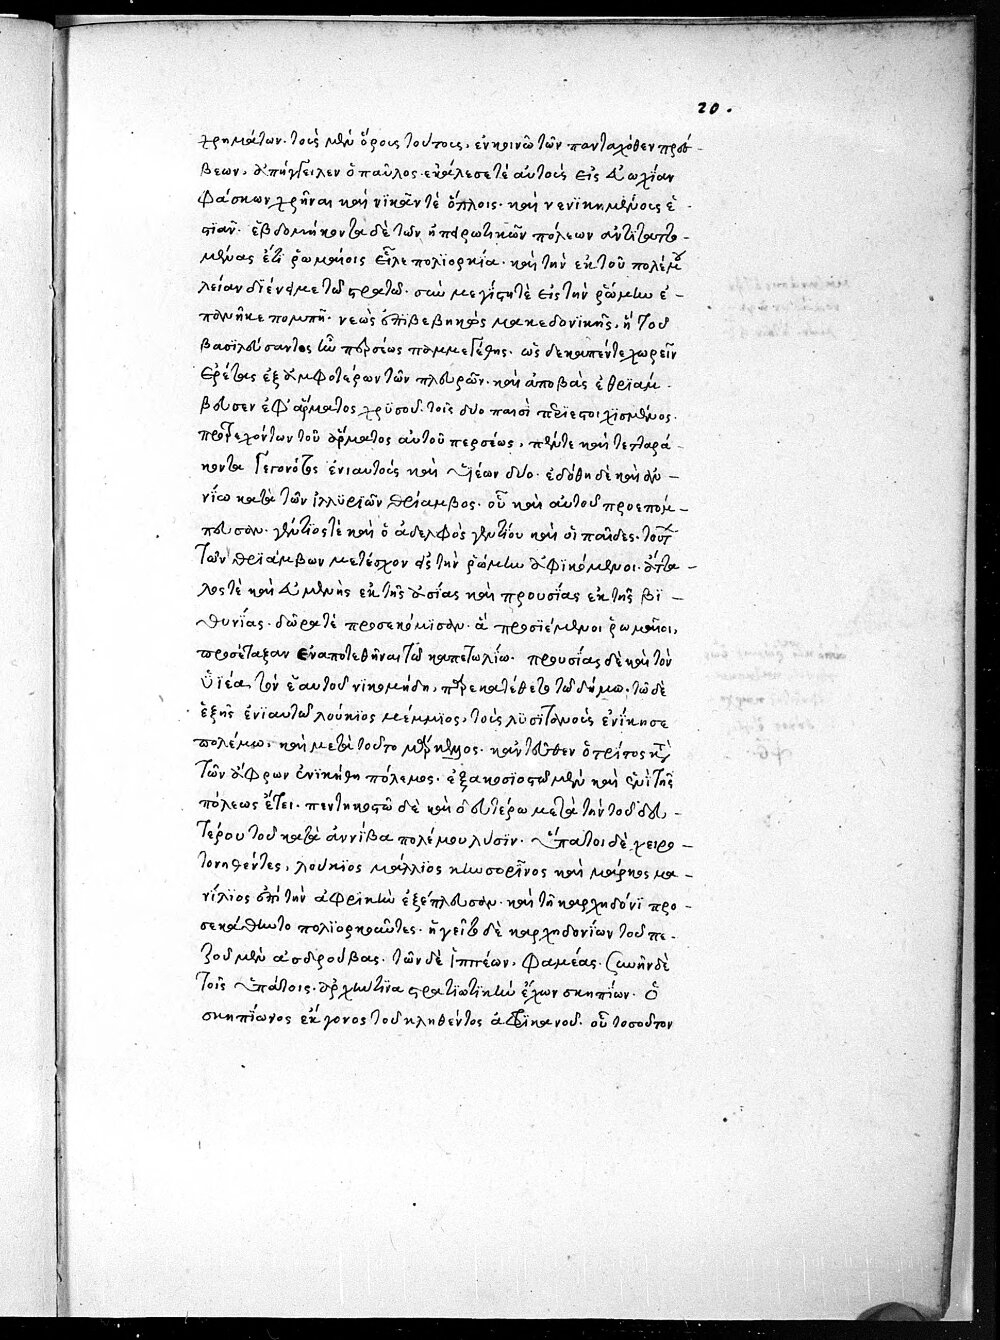 20.
χρημάτων. τοῖς μὲν ὅροις τούτοις, ἐν κοινῶ τῶν πανταχόθεν πρέσ-
βεων, ἀπήγγειλεν ὁ παῦλος. ἐκάλεσε τὲ αὐτοὺς εἰς
φάσκων χρῆναι καὶ νικᾶν τὲ ὅπλοις. καὶ νενϊκημένοις ἑ-
στιᾶν. ἑβδομήκοντα δὲ τῶν ἠπειρωτικῶν πόλεων ἀντϊταττο-
μένας ἔτι ῥωμαίοις εἷλε πολϊορκία. καὶ τὴν ἐκ τοῦ πολέμου
λείαν διένειμε τῶ στρατῶ. σὺν μεγίστη τὲ εἰς τὴν ῥώμην ἐ-
πανῆκε πομπῆ. νεὼς ἐπιβεβηκὼς μακεδονϊκῆς, ἢ τοῦ
βασιλεύσαντος ἦν περσέως παμμεγέθης. ὡς δεκαπέντε χωρεῖν
ἐρέτας ἐξ ἀμφοτέρων τῶν πλευρῶν. καὶ ἀποβὰς ἐθρϊάμ-
βευσεν ἐφ' ἅρματος χρϋσοῦ. τοῖς δυο παισὶ περϊεστοιχισμένος.
προτρεχόντων τοῦ ἅρματος αὐτοῦ περσέως, πέντε καὶ τετταρά-
κοντα γεγονότος ἐνιαυτοὺς καὶ ὑϊέων δύο. ἐδόθη δὲ καὶ
κατὰ τῶν ἰλλϋριῶν θρίαμβος. οὗ καὶ αὐτοῦ προεπόμ-
πευσαν. γέντϊος τὲ καὶ ὁ ἀδελφὸς γεντίου καὶ οἱ παῖδες.
τῶν θρϊάμβων μετέσχον εἰς τὴν ῥώμην ἀφϊκόμενοι. ἄττα-
λος τὲ καὶ εὐμένης ἐκ τῆς ἀσίας καὶ προυσίας ἐκ τῆς βϊ-
θυνίας. δῶρα τὲ προσεκόμισαν. ἃ προσϊέμενοι ῥωμαῖοι,
προσέταξαν ἐναποτεθῆναι τῶ καπετωλίω. προυσίας δὲ καὶ τὸν
ὑϊέα τὸν ἑαυτοῦ νικομήδη, παρεκατέθετο τῶ δήμω. τῶ δὲ
ἑξῆς ἐνϊαυτῶ λούκιος μέμμϊος, τοὺς λϋσϊτανοὺς ἐνίκησε
πολέμω. καὶ μετὰ τοῦτο μάρκελλος. κἀντεῦθεν ὁ τρίτος κατὰ
τῶν ἄφρων ἐνϊκήθη πόλεμος. ἑξακοσϊοστῶ μὲν καὶ ἑνὶ τῆς
πόλεως ἔτει. πεντηκοστῶ δὲ καὶ δευτέρω μετὰ τὴν τοῦ δευ-
τέρου τοῦ κατὰ ἀννίβα πολέμου λύσϊν. ὕπατοι δὲ χειρο-
τονηθέντες, λούκϊος μάλλϊος κηνσορῖνος καὶ μάρκος μα-
νίλϊος ἐπὶ τὴν ἀφρϊκὴν ἐξέπλευσαν. καὶ τῆ καρχηδόνϊ προ-
σεκάθηντο πολϊορκοῦντες. ἡγεῖτο δὲ καρχηδονίων τοῦ πε-
ζοῦ μὲν ἀσδρούβας. τῶν δὲ ἱππέων, φαμέας. συνῆν δὲ
τοῖς ὑπάτοις. ἀρχήν τινα στρατϊωτϊκὴν ἔχων σκηπίων. ὁ
σκηπίωνος ἔκγονος τοῦ κληθέντος ἀφρϊκανοῦ. οὗ τοσοῦτον